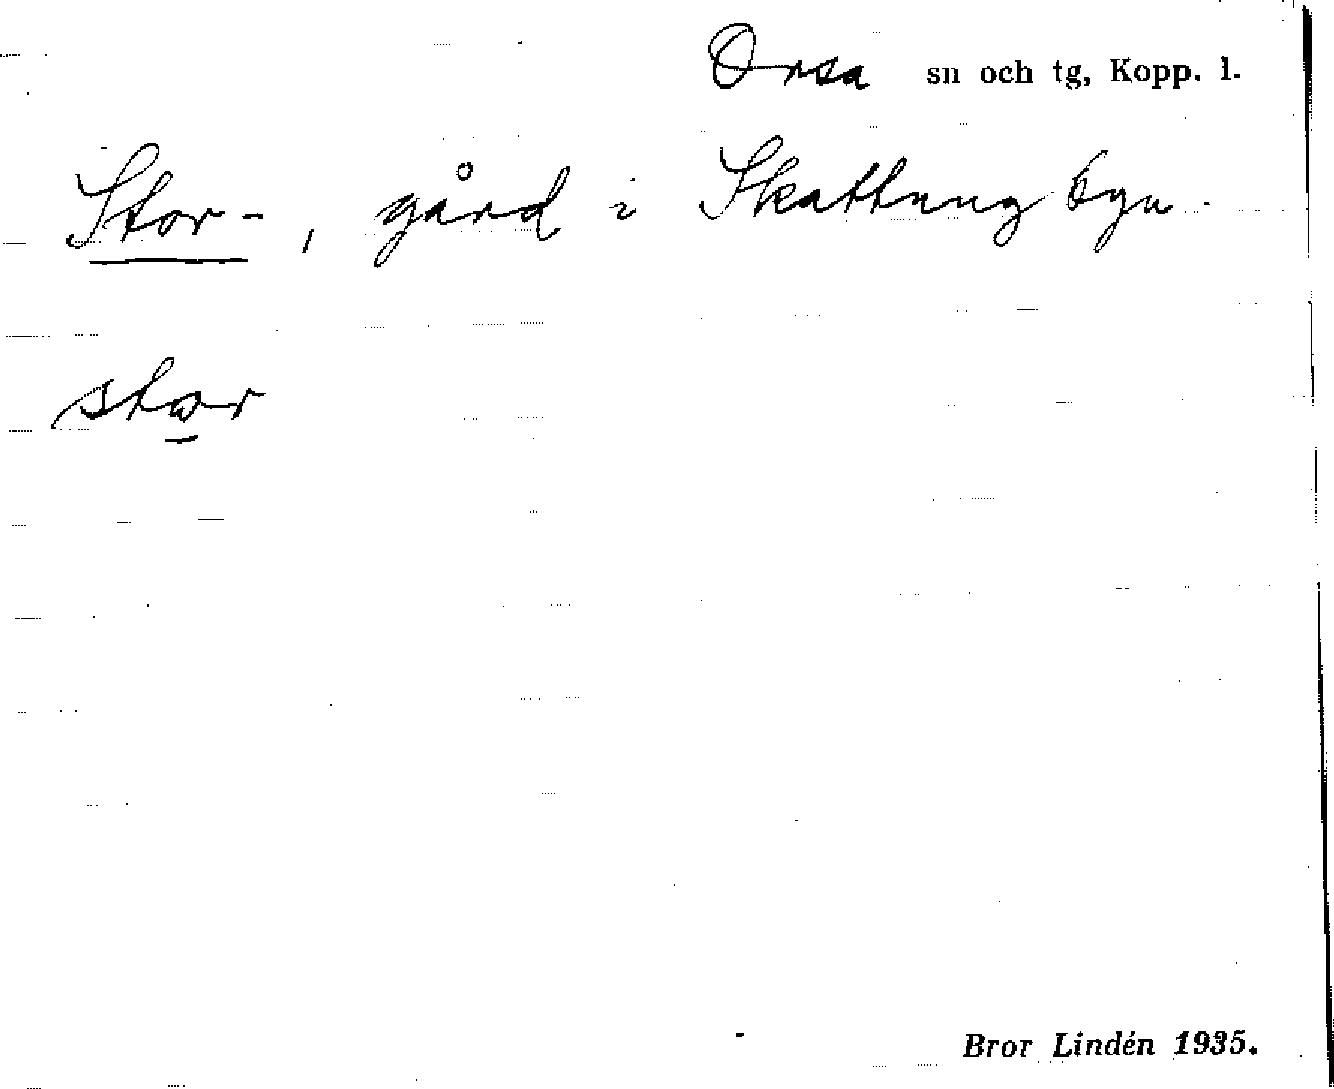 Orsa sn och tg, Kopp. l.
Stor-, gård i Skattungbyn.
stor
Bror Lindén 1935.